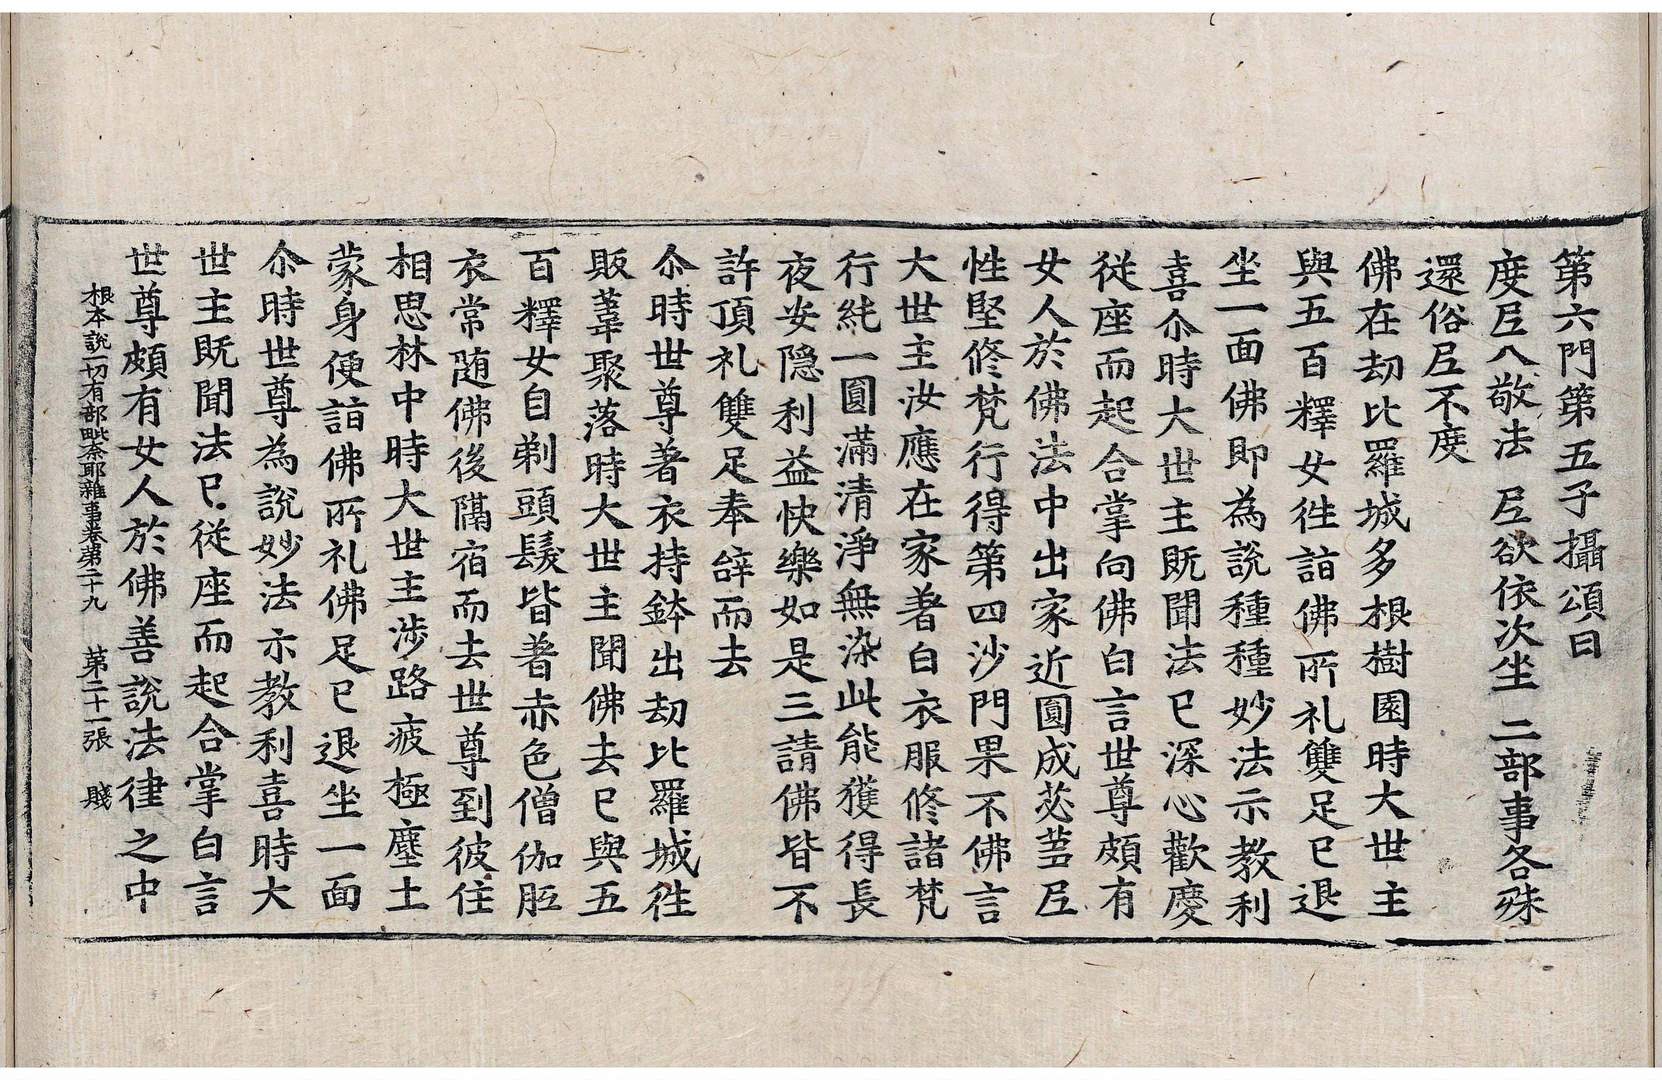 第六門第五子攝頌曰
度尼八敬法　尼欲依次坐　二部事各殊
還俗尼不度
佛在劫比羅城多根樹園時大世主
與五百釋女徃詣佛所礼雙足已退
坐一面佛即為說種種妙法示教利
喜尒時大世主既聞法已深心歡慶
從座而起合掌向佛白言世尊頗有
女人於佛法中出家近圓成苾蒭尼
性堅修梵行得第四沙門果不佛言
大世主汝應在家著白衣服修諸梵
行純一圓滿清淨無染此能獲得長
夜安隱利益快樂如是三請佛皆不
許頂礼雙足奉辝而去
尒時世尊著衣持鉢出劫比羅城徃
販葦聚落時大世主聞佛去已與五
百釋女自剃頭髮皆著赤色僧伽胝
衣常随佛後隔宿而去世尊到彼住
相思林中時大世主涉路疲極塵土
蒙身便詣佛所礼佛足已退坐一面
尒時世尊為說妙法示教利喜時大
世主既聞法已從座而起合掌白言
世尊頗有女人於佛善說法律之中
根本說一切有部毗奈耶雜事卷第二十九　第二十一張　賤